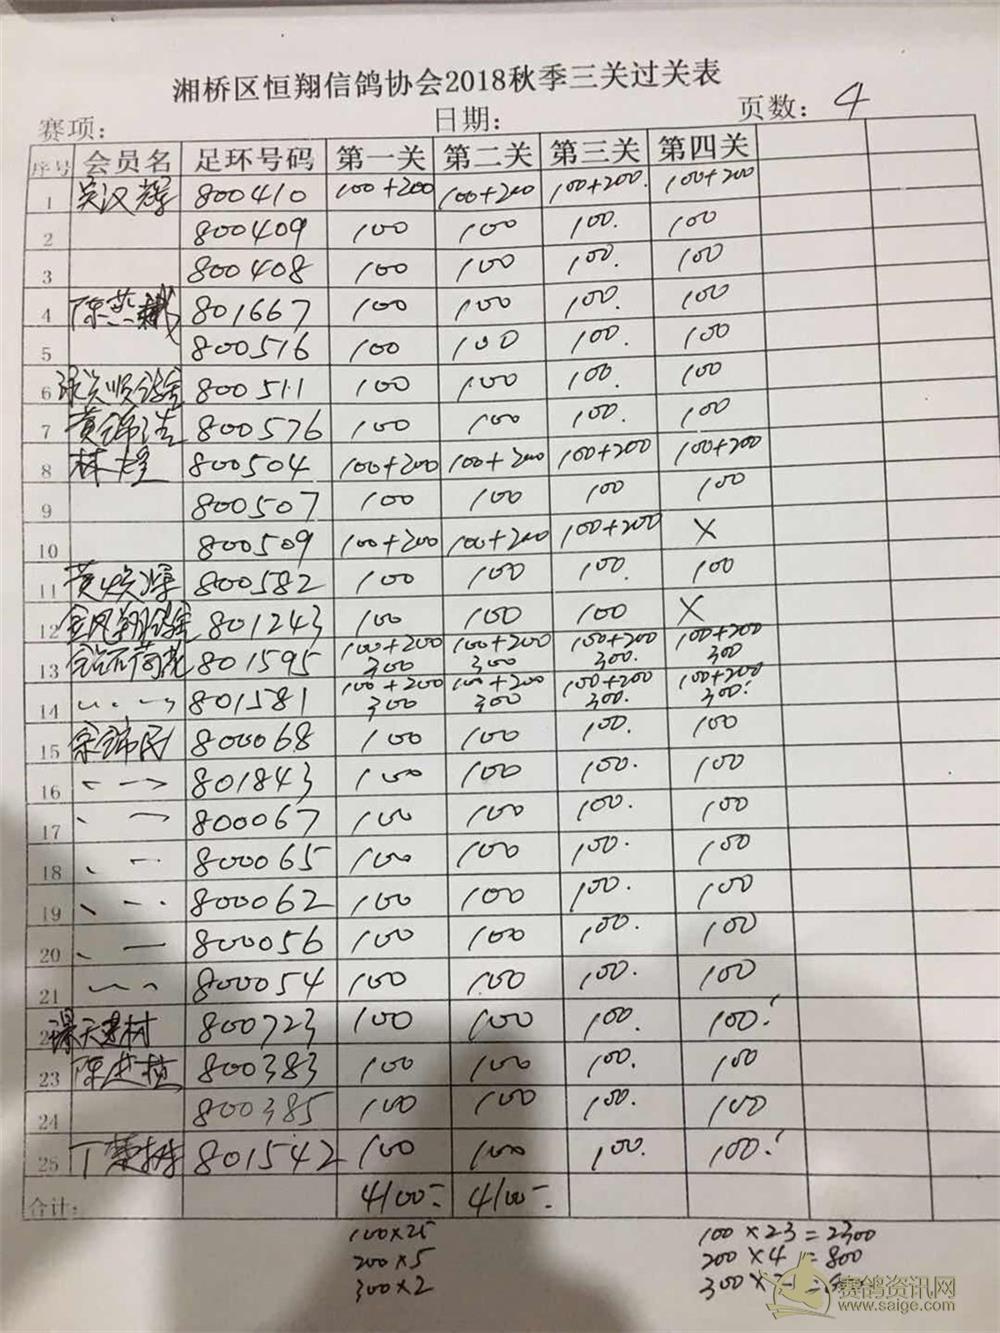 湘桥区恒翔信鸽协会2018秋季三关过关表
赛项: 日期: 页数: 4
序号 会员名 足环号码 第一关 第二关 第三关 第四关
1 吴汉辉 800410 100+200 100+200 100+200. 100+200
2 800409 100 100 100. 100
3 800408 100 100 100. 100
4 陈燕 801667 100 100 100. 100
5 800516 100 100 100. 100
6 800511 100 100 100. 100
7 黄锦浩 800576 100 100 100. 100
8 林煌 800504 100+200 100+200 100+200 100+200
9 800507 100 100 100 100
10 800509 100+200 100+200 100+200 X
11 黄焕 800582 100 100 100. 100
12 金凤翔鸽舍 801243 100 100 100 X
13 801595 100+200 300 100+200 300 100+200 300. 100+200 300
14 801581 100+200 300 100+200 300 100+200 300. 100+200 300.
15 余锦民 800068 100 100 100. 100
16 801843 100 100 100. 100
17 800067 100 100 100. 100
18 800065 100 100 100. 100
19 800062 100 100 100. 100
20 800056 100 100 100. 100
21 800054 100 100 100. 100
800723 100 100 100. 100.
23 陈 800383 100 100 100. 100
24 800385 100 100 100. 100
25 丁 801542 100 100 100. 100.
合计: 4100- 4100-
100×25 100×23=2300
200×5 200×4=800
300×2 300×
赛鸽资讯网
www.saige.com